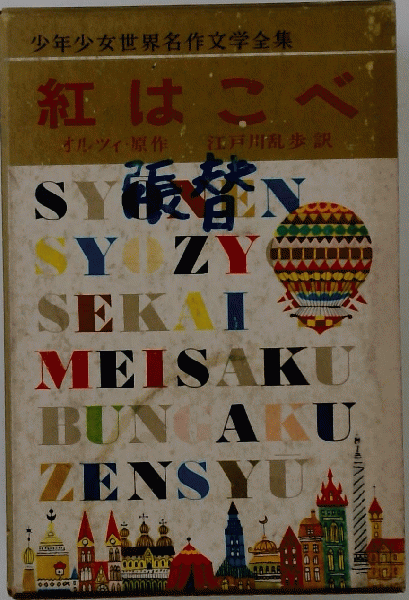 少年少女世界名作文学全集
紅はこべ
オルツィ・原作 江戸川乱歩 訳
張替
SYŌNEN
SYOZY
SEKAI
MEISAKU
BUNGAKU
ZENSYŪ